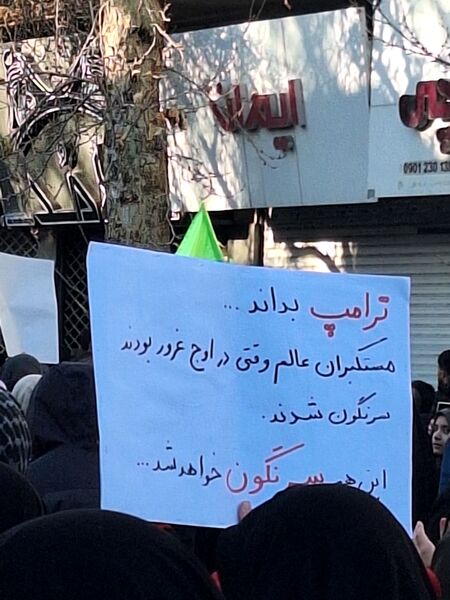 ایمان
0901 230 13
ترامپ بداند ...
مستکبران عالم وقتی در اوج غرور بودند
سرنگون شدند.
این هم سرنگون خواهد شد ...